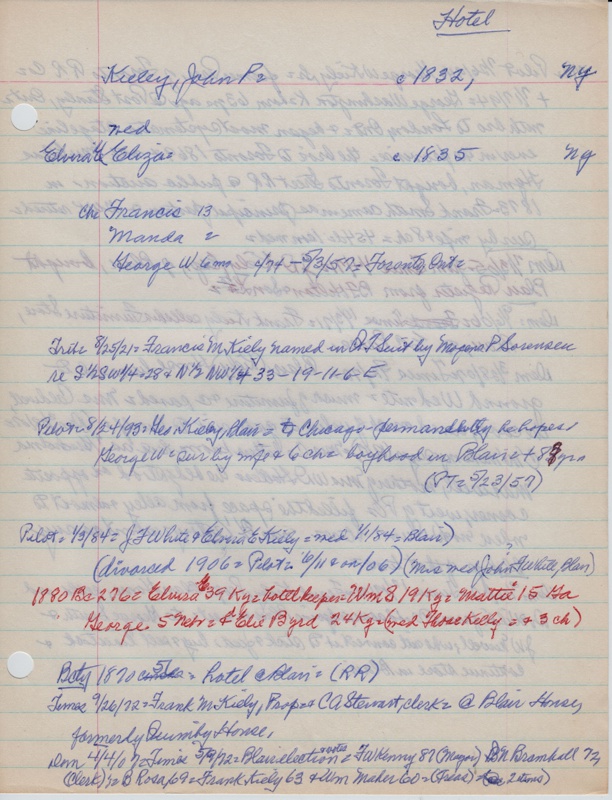 Hotel
Kieley, John P= c 1832, Ny
med
Elvira E, Eliza= c 1835 Ny
Che Francis 13
Manda 2
George W 6 mo 4/74 - 5/3/57= Toronto, Ont=
Trib= 8/25/21= Francis M Kiely named in QT Suit by Mogens P Sorensen
re S½SW¼=28 & N½ NW¼ 33-19-11-6-E
Pilot= 8/24/93= Geo Kieley, Blair= to Chicago - permanently he hopes,
George W= sur by mp & 6 ch= boyhood in Blair + 88 yrs
(PT= 5/23/57)
Pilot= 1/3/84= J F White & Elvira E Kiely= med 1/1/84= Blair)
(divorced 1906= Pilot= 6/11 & on/06) (Mrs med John F White, Blair)
?
1880 Bc 276= Elvira E 39 Ky= hotel keeper= Wm S 19 Ky= Mattie 15 Ga
George 5 Nebr= & Elie Byrd 24 Ky= (med Thos Kelly= + 3 ch)
Bcty 1870 = hotel @ Blair= (RR)
Times 9/26/72= Frank M Kiely, Prop & C A Stewart, clerk= @ Blair House,
formerly Quimby House,
Dom 4/4/07= Times 5/9/72= Blair election votes= F W Kenny 87 (Mayor) B N Bramhall 72
(Clerk) B Rosa, 69= Frank Kiely 63 & Wm Maher 60= (Treas) 2 items)